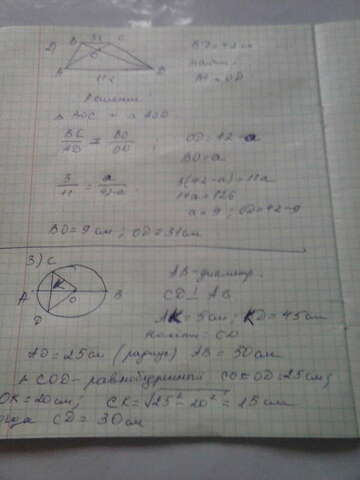 2) B 3x C
O
A 11x D
BD = 42 см
Решение
△ BOC ~ △ AOD
BC/AD = BO/OD ; OD = 42-a
BO = a
3/11 = a/42-a 3(42-a) = 11a
14a = 126
a = 9 ; OD = 42-9
BO = 9 см ; OD = 31 см
3) C
A K O B
D
AB - диаметр.
CD ⊥ AB
AK = 5 см; KD = 45 см
CD
AD = 25 см (радиус) AB = 50 см
△ COD - равнобедренный CO = OD = 25 см;
OK = 20 см; CK = √25² - 20² = 15 см
CD = 30 см